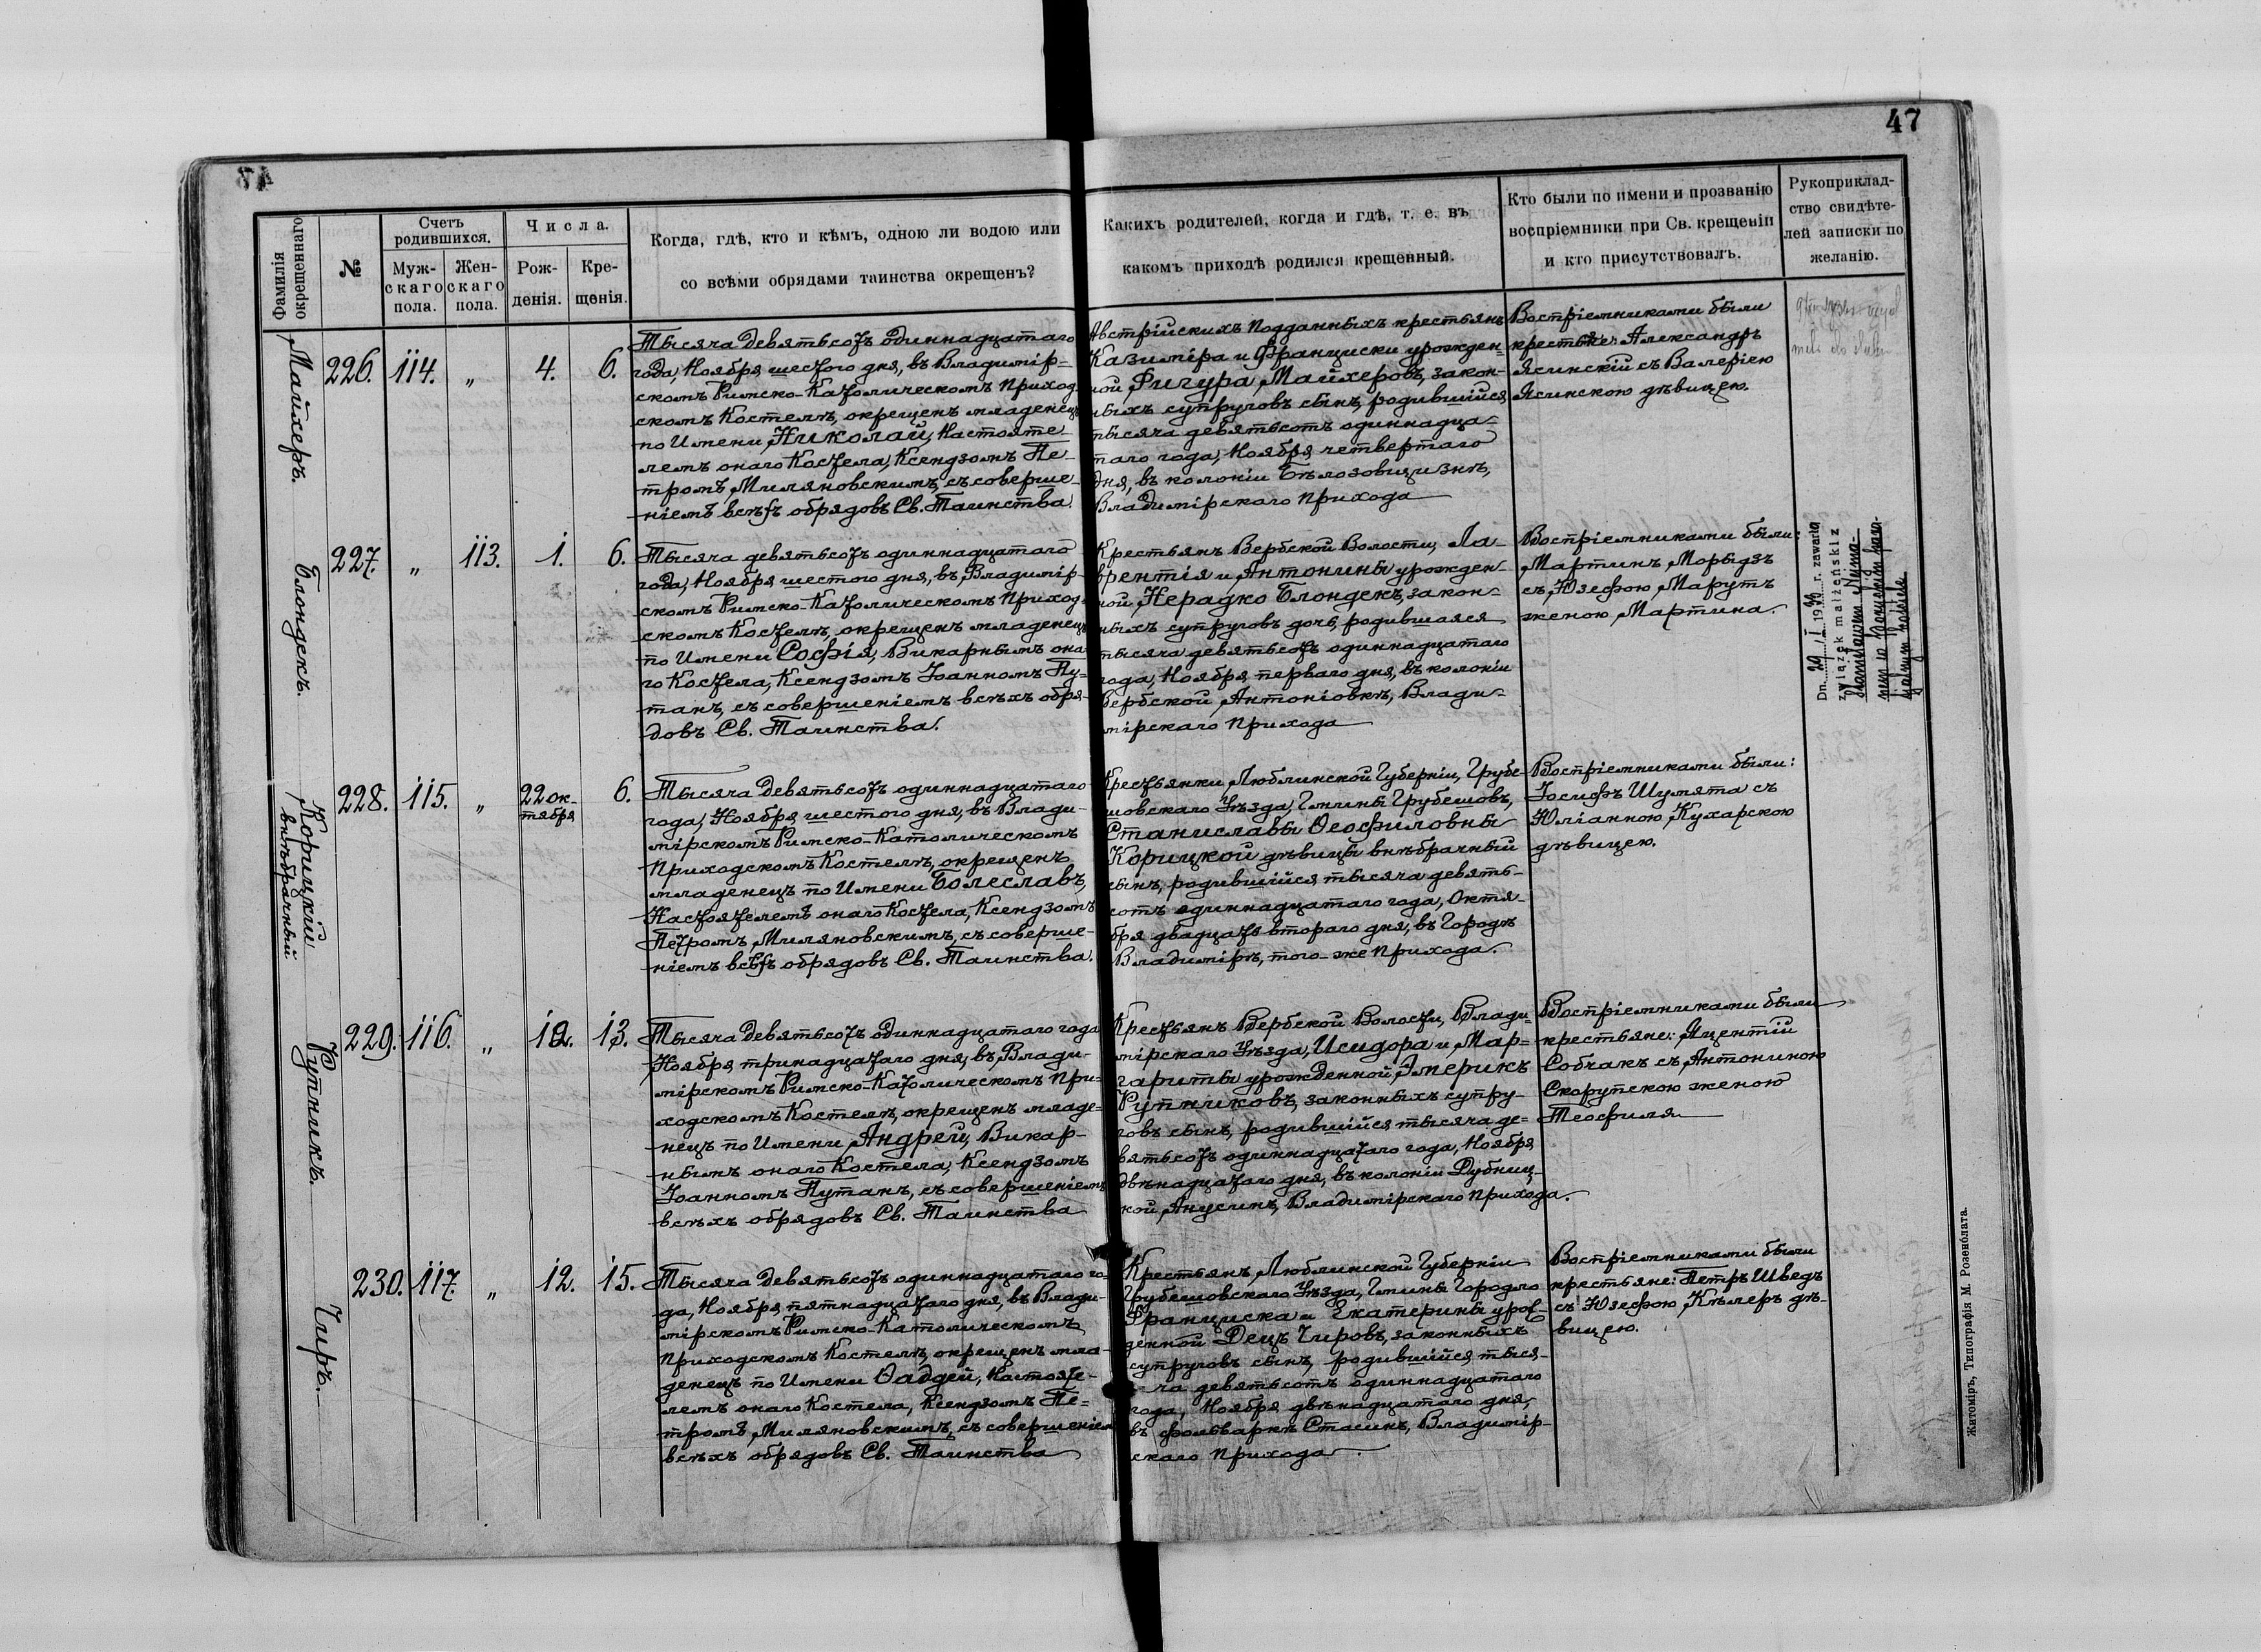 47
Фамилія
окрещеннаго
№
Счетъ
родившихся.
Муж-
скаго
пола.
Жен-
скаго
пола.
Числа.
Рож-
денія.
Кре-
щенія.
Когда, гдѣ, кто и кѣмъ, одною ли водою или
со всѣми обрядами таинства окрещенъ?
Какихъ родителей, когда и гдѣ, т. е. въ
какомъ приходѣ родился крещенный.
Кто были по имени и прозванію
воспріемники при Св. крещеніи
и кто присутствовалъ.
Рукоприклад-
ство свидѣте-
лей записки по
желанію.
Майхеръ.
226. 114. „ 4. 6.
Тысяча девятьсотъ одиннадцатаго
года, Ноября шестого дня, въ Владимір-
скомъ Римско-Католическомъ Приход-
скомъ Костелѣ, окрещенъ младенецъ
по Имени Николай, Настояте
лемъ онаго Костела, Ксендзомъ Пе-
тромъ Миляновскимъ, съ соверше-
ніемъ всѣхъ обрядовъ Св. Таинства.
Австрійскихъ подданныхъ крестьянъ
Казиміра и Франциски урожден-
ной Фигура, Майхеровъ, закон-
ныхъ супруговъ сынъ, родившійся
тысяча девятьсотъ одиннадца-
таго года, Ноября четвертаго
дня, въ колоніи Бѣлозовщизнѣ,
Владимірскаго прихода
Востріемниками были
крестьяне: Александръ
Ясинскій съ Валеріею
Ясинскою дѣвицею.
Блондекъ.
227. „ 113. 1. 6.
Тысяча девятьсотъ одиннадцатаго
года, Ноября шестого дня, въ Владимір-
скомъ Римско-Католическомъ Приход-
скомъ Костелѣ, окрещенъ младенецъ
по Имени Софія, Викарнымъ она
го Костела, Ксендзомъ Іоанномъ Пу-
танъ, съ совершеніемъ всѣхъ обря-
довъ Св. Таинства.
Крестьянъ Вербской Волости, Ла-
врентія и Антонины урожден
ной Нерадко Блондекъ, закон-
ныхъ супруговъ дочь, родившаяся
тысяча девятьсотъ одиннадцатаго
года, Ноября перваго дня, въ колоніи
Вербской Антоніовкѣ, Влади-
мірскаго прихода
Востріемниками были:
Мартинъ Морыдзъ
съ Юзефою Марутъ
женою Мартина.
Dn. 29/I 1930 r. zawarła
związek małżeński z
Корицкій
внѣбрачный
228. 115. „ 22 ок-
тября 6.
Тысяча девятьсотъ одиннадцатаго
года, Ноября шестого дня, въ Влади-
мірскомъ Римско-Католическомъ
Приходскомъ Костелѣ, окрещенъ
младенецъ по Имени Болеславъ,
Настоятелемъ онаго Костела, Ксендзомъ
Петромъ Миляновскимъ, съ соверше-
ніемъ всѣхъ обрядовъ Св. Таинства.
Крестьянки Люблинской Губерніи, Грубе-
шовскаго Уѣзда, Гмины Грубешовъ,
Станиславы Ѳеофиловны
Корицкой дѣвицы внѣбрачный
сынъ, родившійся тысяча девять-
сотъ одиннадцатаго года, Октя-
бря двадцать втораго дня, въ Городѣ
Владимірѣ, того-же прихода.
Востріемниками были:
Іосифъ Шумята съ
Юліанною Кухарскою
дѣвицею.
Рутникъ.
229. 116. „ 12. 13.
Тысяча девятьсотъ одиннадцатаго года
Ноября тринадцатаго дня, въ Влади-
мірскомъ Римско-Католическомъ При-
ходскомъ Костелѣ, окрещенъ младе-
нецъ по Имени Андрей, Викар-
нымъ онаго Костела, Ксендзомъ
Іоанномъ Путанъ, съ совершеніемъ
всѣхъ обрядовъ Св. Таинства
Крестьянъ Вербской Волости, Влади-
мірскаго Уѣзда, Исидора и Мар-
гариты урожденной Америкъ
Рутниковъ, законныхъ супру-
говъ сынъ, родившійся тысяча де-
вятьсотъ одиннадцатаго года, Ноября
двѣнадцатаго дня, въ колоніи Дубниц-
кой Анусинъ, Владимірскаго прихода.
Востріемниками были
крестьяне: Яцентій
Собчакъ съ Антониною
Скорупскою женою
Теофиля
Чиръ.
230. 117. „ 12. 15.
Тысяча девятьсотъ одиннадцатаго го-
да, Ноября пятнадцатаго дня, въ Влади-
мірскомъ Римско-Католическомъ
Приходскомъ Костелѣ, окрещенъ мла-
денецъ по Имени Ѳаддей, Настояте-
лемъ онаго Костела, Ксендзомъ Пе-
тромъ Миляновскимъ, съ совершеніем
всѣхъ обрядовъ Св. Таинства
Крестьянъ Люблинской Губерніи
Грубешовскаго Уѣзда, Гмины Городло
Франциска и Екатерины урож-
денной Децъ Чировъ, законныхъ
супруговъ сынъ, родившійся тыся-
ча девятьсотъ одиннадцатаго
года, Ноября двѣнадцатаго дня,
въ фольваркѣ Стасинъ, Владимір-
скаго прихода.
Востріемниками были
крестьяне: Петръ Шведъ
съ Юзефою Кѣлеръ дѣ-
вицею.
Житоміръ, Типографія М. Розенблата.